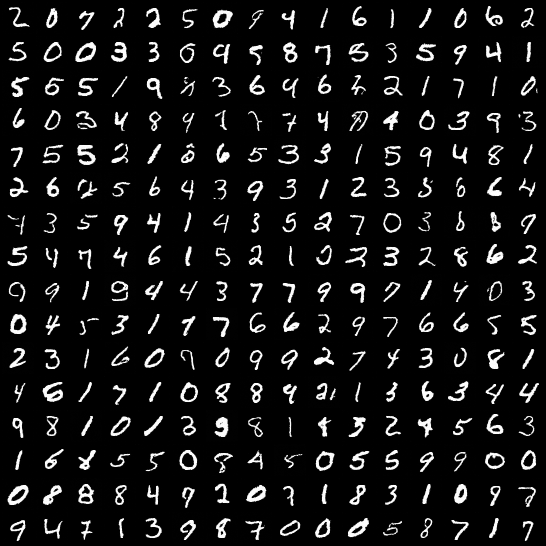 2 0 7 2 2 5 0 9 4 1 6 1 1 0 6 2
5 0 0 3 3 0 9 5 8 7 8 3 5 9 4 1
5 5 1 9 3 6 4 6 2 1 7 1 0
6 0 3 4 8 9 7 4 4 0 3 9 3
7 5 5 2 1 6 5 3 3 1 5 9 4 8 1
2 6 5 6 4 3 9 3 1 2 3 6 4
3 5 9 4 1 4 3 5 2 7 0 3 8 9
5 4 7 4 6 1 5 2 1 0 2 3 2 8 6 2
9 9 1 9 4 4 3 7 7 9 9 7 1 4 0 3
0 4 5 3 1 7 7 6 6 2 9 7 6 6 5 5
2 3 1 6 0 9 0 9 9 2 7 4 3 0 8 1
4 6 1 7 1 0 8 8 9 1 3 6 3 4 4
9 8 1 0 1 3 9 8 1 8 3 2 4 5 6 3
1 6 8 5 5 0 8 4 5 0 5 5 9 9 0 0
0 8 8 8 4 9 2 0 7 1 8 3 1 0 9 7
9 4 7 1 3 9 8 7 0 0 0 5 8 7 1 7